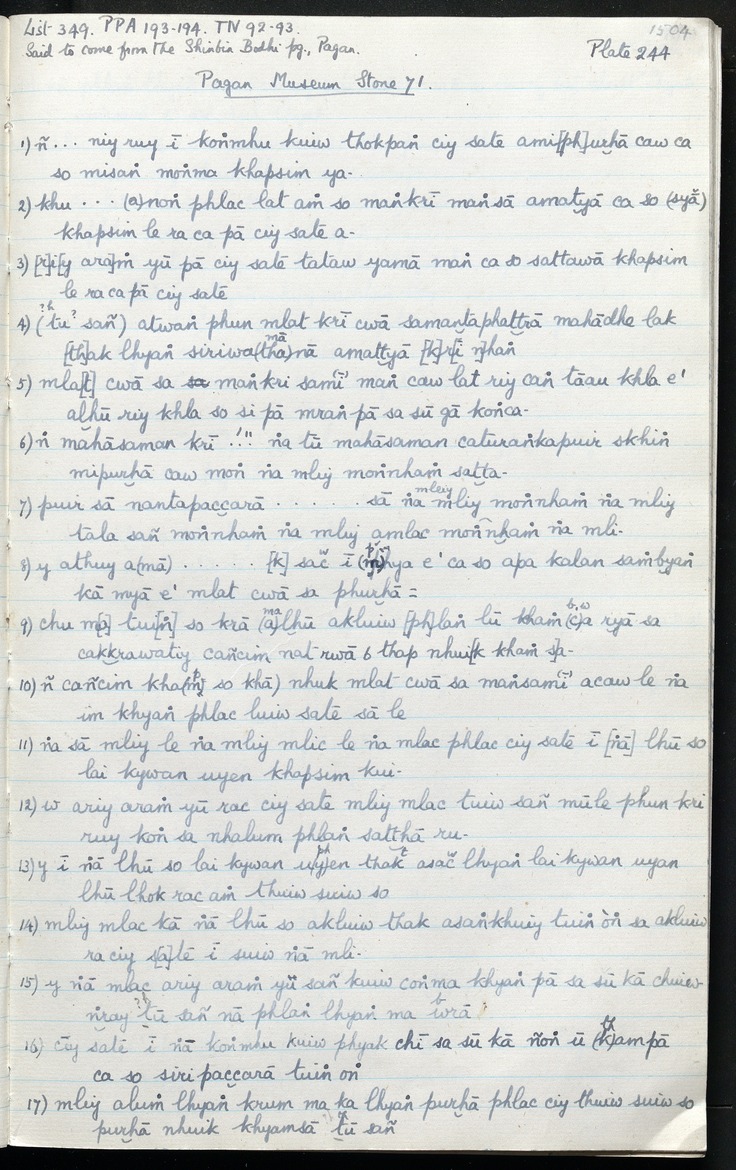 List 349. PPA 193-194. TN 92-93.
1504
Said to come from the Shinbin Bodhi pg., Pagan.
Plate 244
Pagan Museum Stone 71.
1) ñ... niy ruy ī koṅmhu kuiw thokpaṅ ciy satē ami[ph]urhā caw ca
so misaṅ moṅma khapsim ya-
2) khu ... (a)noṅ phlac lat aṁ so maṅkrī maṅsā amatyā ca so (syā̆)
khapsim le ra ca pā ciy satē a-
3) [r]i[y ara]ṁ yū pā ciy satē tataw yamā maṅ ca so sattawā khapsim
le ra ca pā ciy satē
4) (tū sañ) atwaṅ phun mlat krī cwā samantaphattrā mahādhe lak
[th]ak lhyaṅ siriwa(tha)nā amattyā [k]r[i n]haṅ
5) mla[t] cwā sa maṅkri samī maṅ caw lat riy caṅ tāau khla e'
alhū riy khla so si pā mraṅ pā sa sū gā koṅca-
6) ṅ mahāsaman krī .'!! ṅa tū mahāsaman caturaṅkapuir skhiṅ
mipurhā caw moṅ ṅa mliy moṅnhaṁ satta-
7) puir sā nantapaccarā ...... sā ṅa mliy moṅnhaṁ ṅa mliy
tala sañ moṅnhaṁ ṅa mliy amlac moṅnhaṁ ṅa mli-
8) y athuy a(mā) ...... [k] sac̆ ī hya e' ca so apa kalan sambyaṅ
kā myā e' mlat cwā sa phurhā =
9) chu m[a] tui[ṅ] so krā (a)lhū akluiw [ph]laṅ lū kham (c)a ryā sa
cakkrawatiy cañcim nat rwā 6 thap nhui[k kham s]a-
10) ñ cañcim kha(ṁ) so khā) nhuk mlat cwā sa maṅsamī acaw le ṅa
im khyaṅ phlac luiw satē sā le
11) ṅa sā mliy le ṅa mliy mlic le ṅa mlac phlac ciy satē ī [ṅā] lhū so
lai kywan uyen khapsim kui-
12) w ariy araṁ yū rac ciy satē mliy mlac tuiw sañ mūle phun kri
ruy koṅ sa nhalum phlaṅ satthā ru-
13) y ī ṅā lhū so lai kywan u(y)en thak asac̆ lhyaṅ lai kywan uyan
lhū lhok rac aṁ thuiw suiw so
14) mliy mlac kā ṅā lhū so akluiw thak asaṅkhuiy tuiṅ òṅ sa akluiw
ra ciy s[a]tē ī suiw ṅā mli-
15) y ṅā mlac ariy araṁ yū sañ kuiw coṅma khyaṅ pā sa sū kā chuiew-
ṅray tū sañ nā phlaṅ lhyaṅ ma wrā
16) ciy satē ī ṅā koṅmhu kuiw phyak chī sa sū kā ñoṅ ū (k)ampā
ca so siripaccarā tuiṅ oṅ
17) mliy aluṁ lhyaṅ krum ma ka lhyaṅ purhā phlac ciy thuiw suiw so
purhā nhuik khyamsā tū sañ